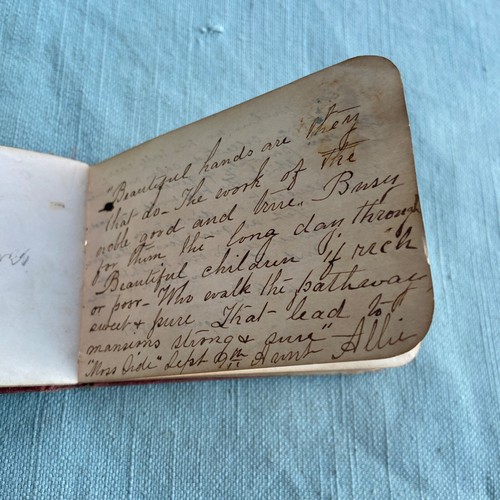 "Beautiful hands are they
that do - The work of the
noble good and true. Busy
for them the long day through
- Beautiful children if rich
or poor - Who walk the pathway
sweet & pure That lead to
mansions strong & sure"
"Moss Side" Sept 9th Aunt Allie